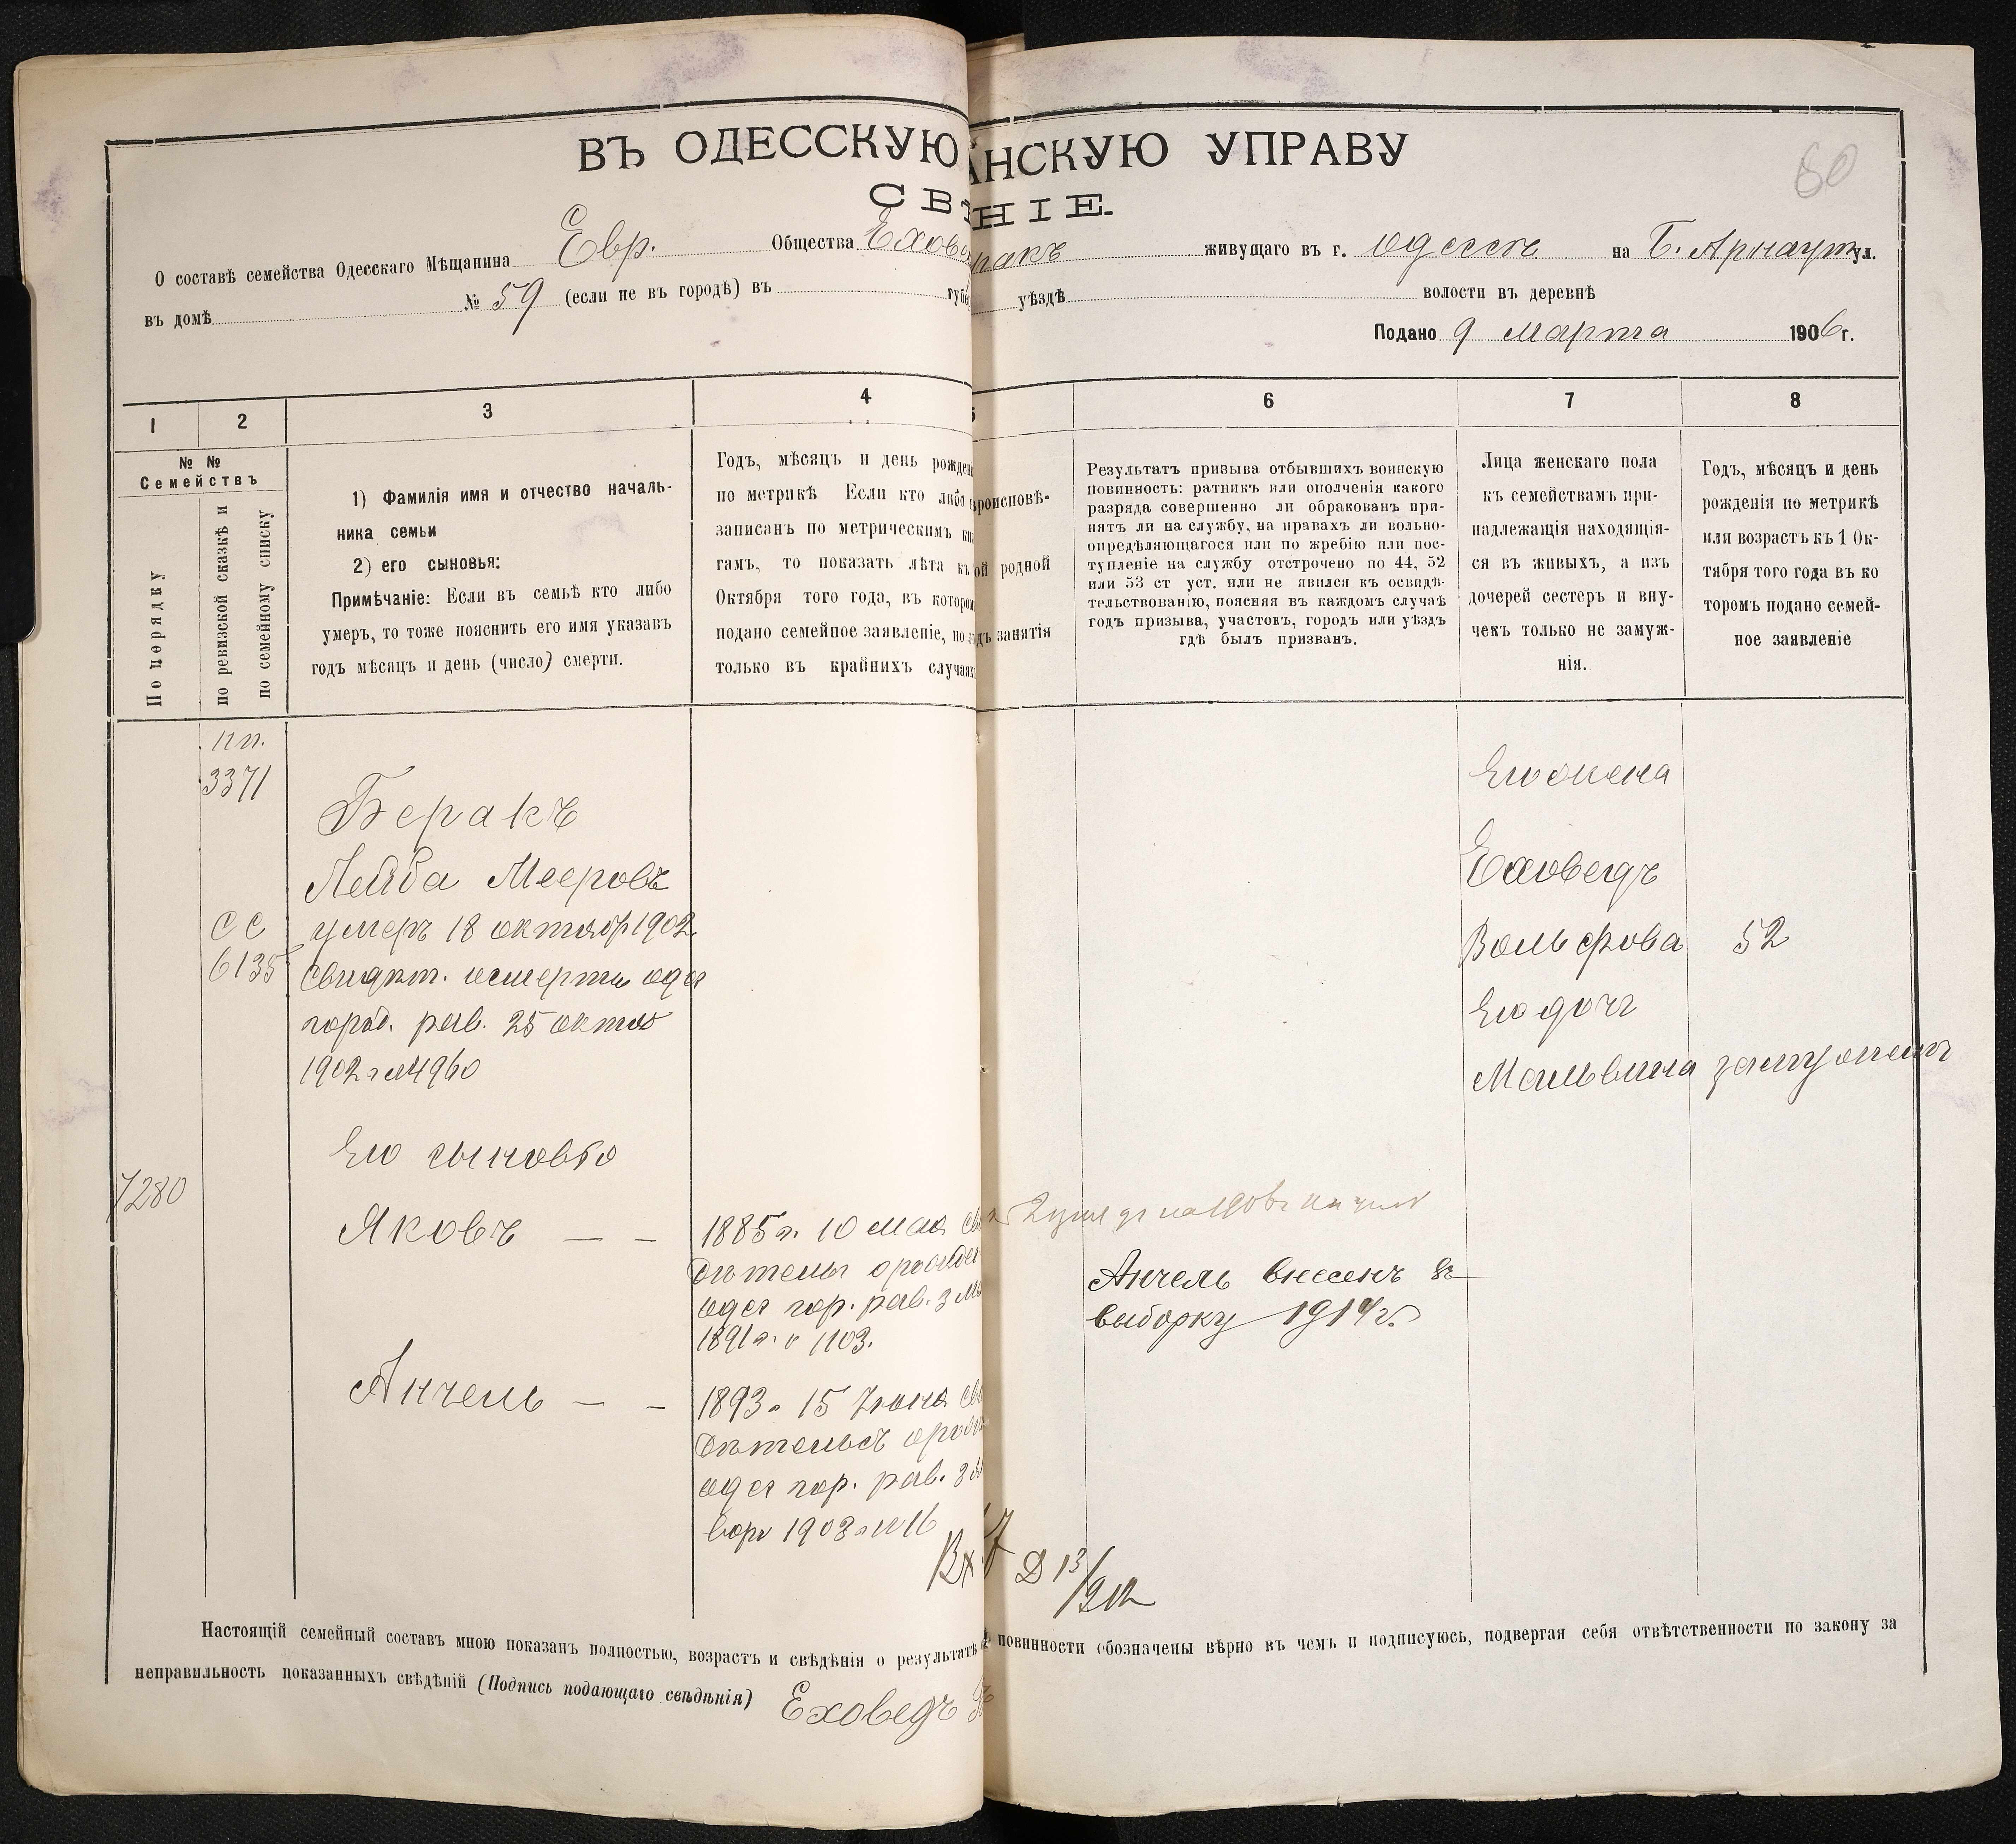 ВЪ ОДЕССКУЮ АНСКУЮ УПРАВУ
60
СВѢ НІЕ.
О составѣ семейства Одесскаго Мѣщанина Евр. Общества Ехове ракъ живущаго въ г. Одессѣ на Б. Арнаут ул.
въ домѣ № 59 (если не въ городѣ) въ губе уѣздѣ волости въ деревнѣ
Подано 9 Марта 1906 г.
1 2 3 4 5 6 7 8
№ №
Семействъ
По порядку
по ревизской сказкѣ и
по семейному списку
1) Фамилія имя и отчество началь-
ника семьи
2) его сыновья:
Примѣчаніе: Если въ семьѣ кто либо
умеръ, то тоже пояснить его имя указавъ
годъ мѣсяцъ и день (число) смерти.
Годъ, мѣсяцъ и день рожден
по метрикѣ Если кто либо
записанъ по метрическимъ кн
гамъ, то показать лѣта къ
Октября того года, въ котором
подано семейное заявленіе, но
только въ крайнихъ случаях
роисповѣ-
ой родной
дъ занятія
Результатъ призыва отбывшихъ воинскую
повинность: ратникъ или ополченія какого
разряда совершенно ли обракованъ при-
нятъ ли на службу, на правахъ ли вольно-
опредѣляющагося или по жребію или пос-
тупленіе на службу отстрочено по 44, 52
или 53 ст уст. или не явился къ освидѣ-
тельствованію, поясняя въ каждомъ случаѣ
годъ призыва, участовъ, городъ или уѣздъ
гдѣ былъ призванъ.
Лица женскаго пола
къ семействамъ при-
надлежащія находящія-
ся въ живыхъ, а изъ
дочерей сестеръ и вну-
чекъ только не замуж-
нія.
Годъ, мѣсяцъ и день
рожденія по метрикѣ
или возрастъ къ 1 Ок-
тября того года въ ко
торомъ подано семей-
ное заявленіе
3371
Беракъ
Лейба Мееровъ
СС умеръ 18 октябр 1902
6135 свидѣт. о смерти одес
город. рав. 25 октяб
1902 г № 4960
Его сыновья
7280
Яковъ — —
1885 г. 10 мая св
дѣтельс о рожден
одес гор. рав. 3 м
1891 г. № 1103.
Анчель — —
1893 г 15 Іюня св
дѣтельсъ о рож
одес гор. рав. 3 я
варя 1903 г № 16
Анчель внесенъ въ
выборку 1914 г.
Его жена
Еховедъ
Вольфова 52
Его дочь
Мальвина замужемъ
Вх 7 Д 13/912
Настоящій семейный составъ мною показанъ полностью, возрастъ и свѣдѣнія о результатѣ повинности обозначены вѣрно въ чемъ и подписуюсь, подвергая себя отвѣтственности по закону за
неправильность показанныхъ свѣдѣній (Подпись подающаго свѣдѣнія) Еховедъ